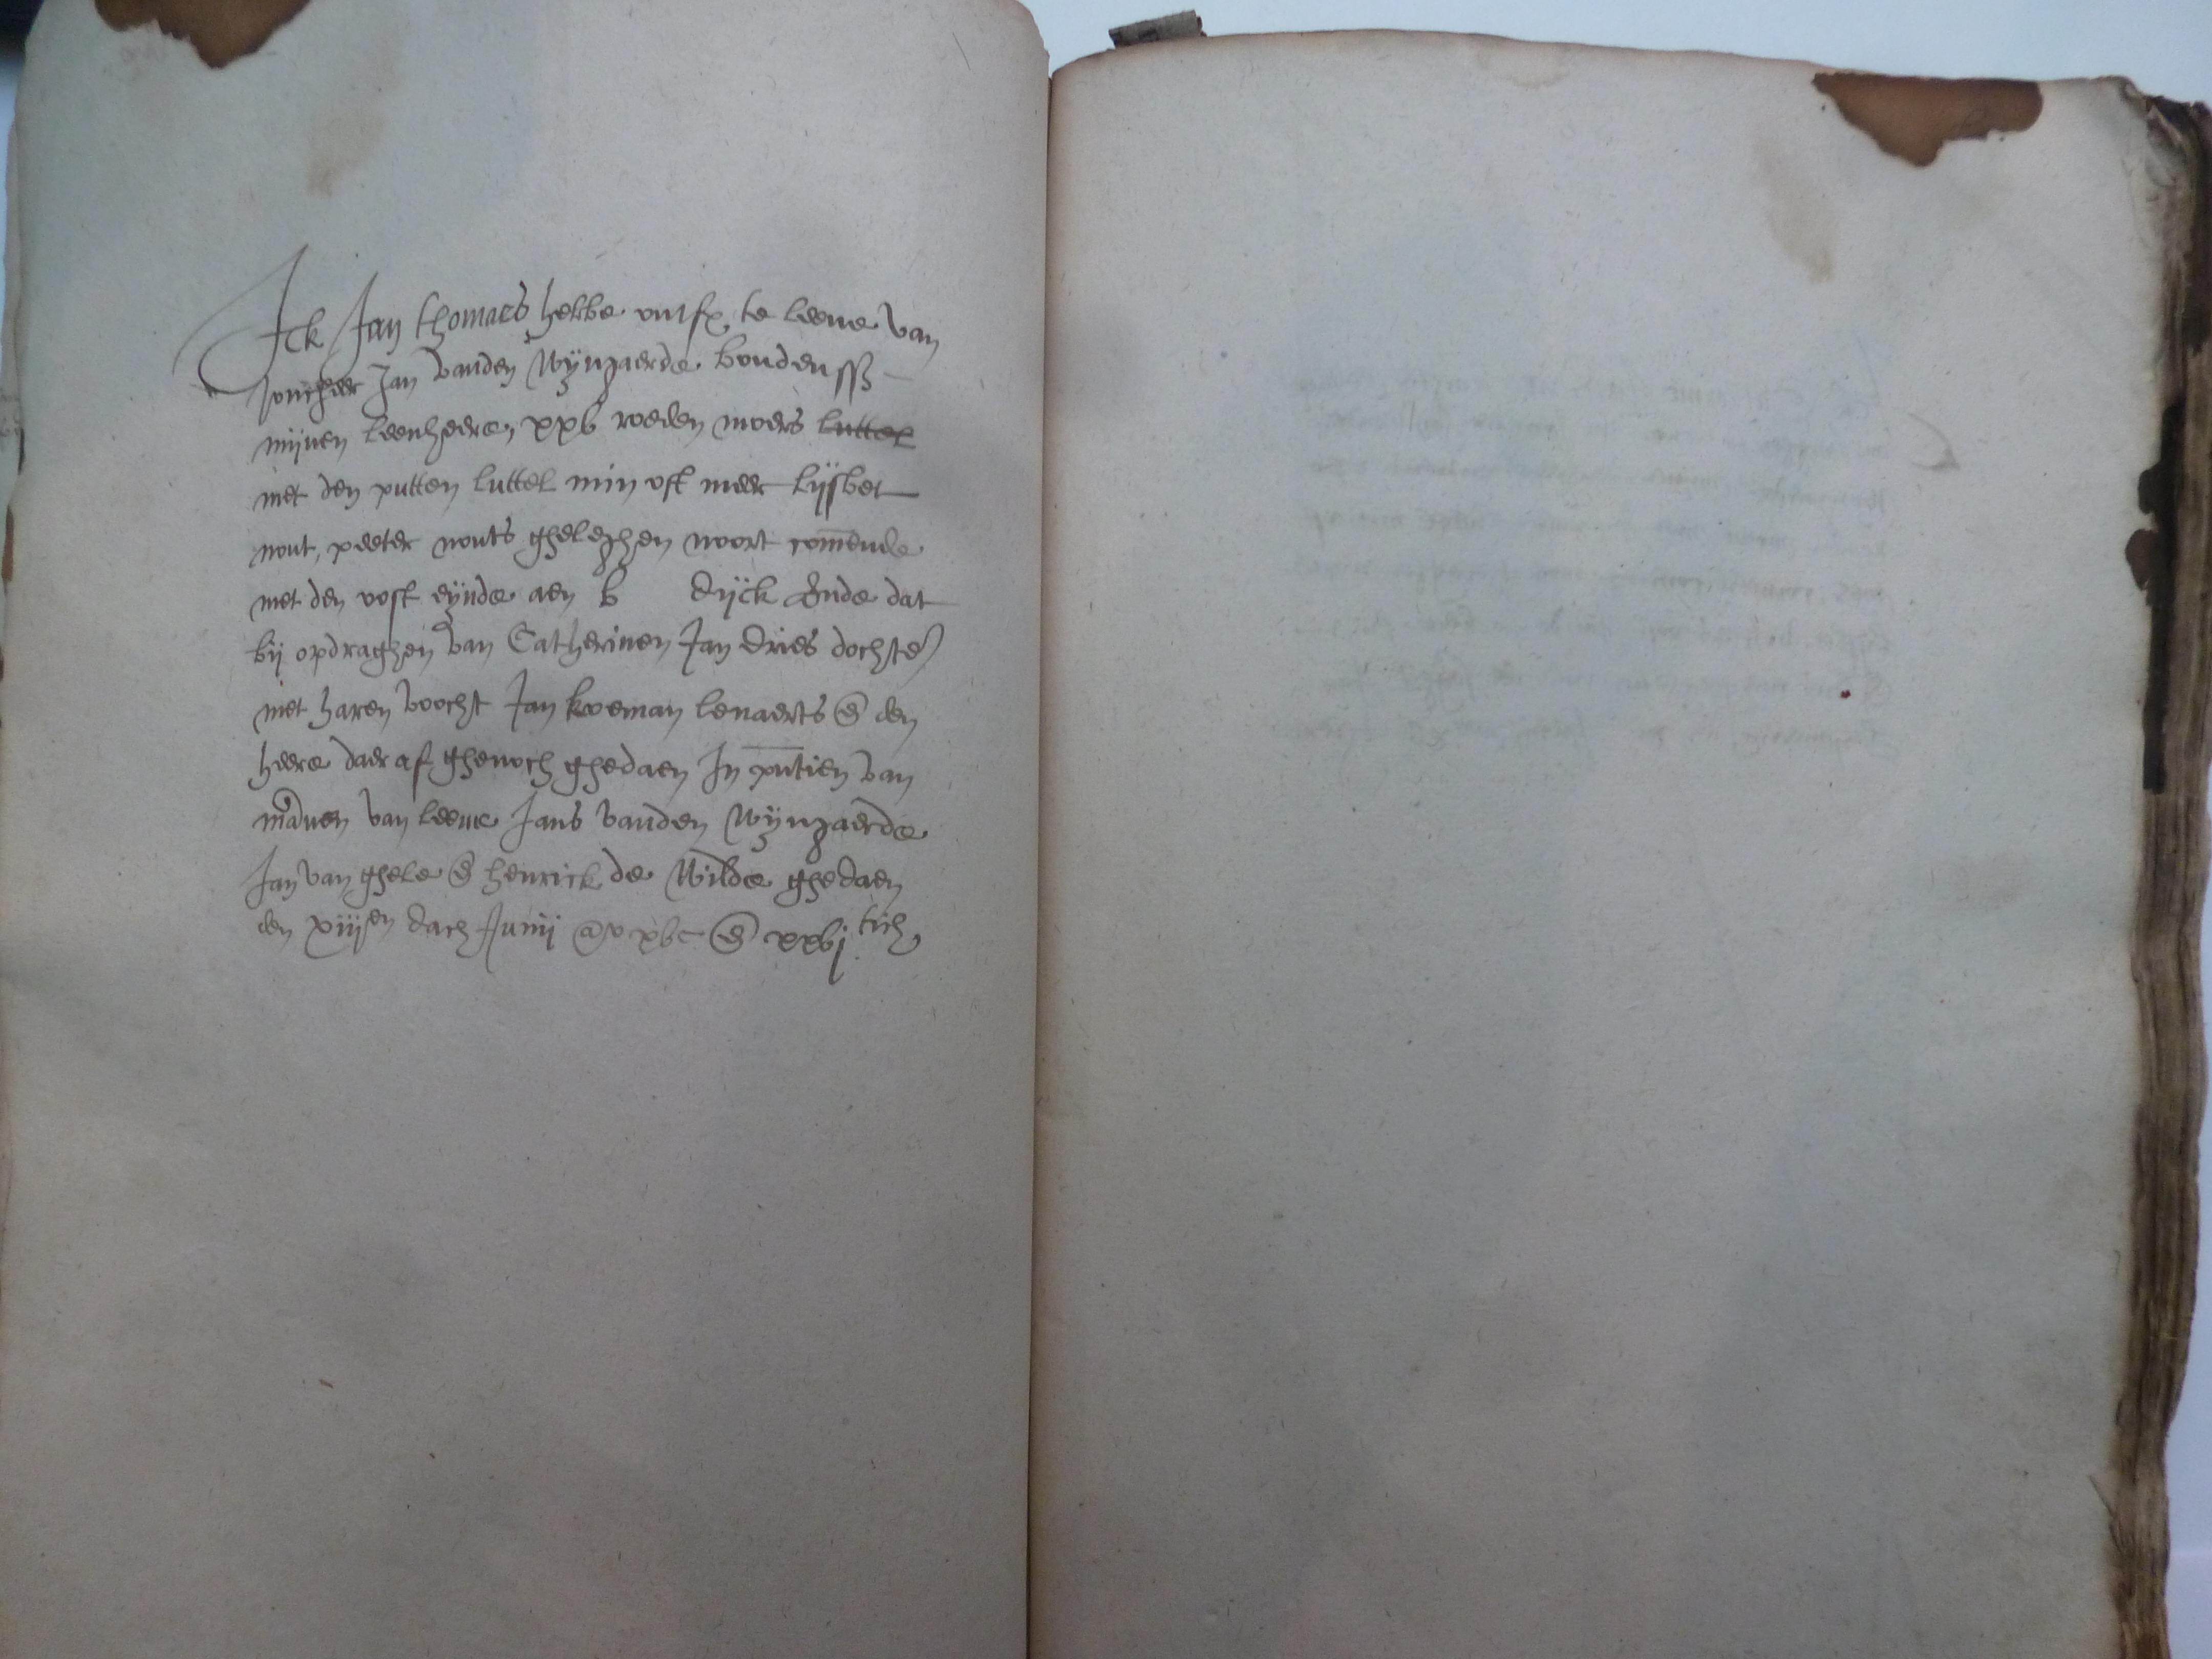 Ick Jan thomaes hebbe ontfx te leene van
Joncheer Jan vanden Wijngaerde boudenss
mijnen leenheere, xxv roeden moers luttel
met den putten luttel min oft meer lijsbet
nout, peeter nouts gheleghen noort comende
met den oost eijnde aen b dijck Ende dat
bij opdraghen van Catherinen Jan dries dochter
met haren voocht Jan koeman lenaerts en den
heere daer af ghenoch ghedaen In pntien van
mannen van leene Jans vanden Wijngaerde
Jan van ghele en henrick de Wilde ghedaen
den xiijen dach Junij ao xvc en xxvj tich